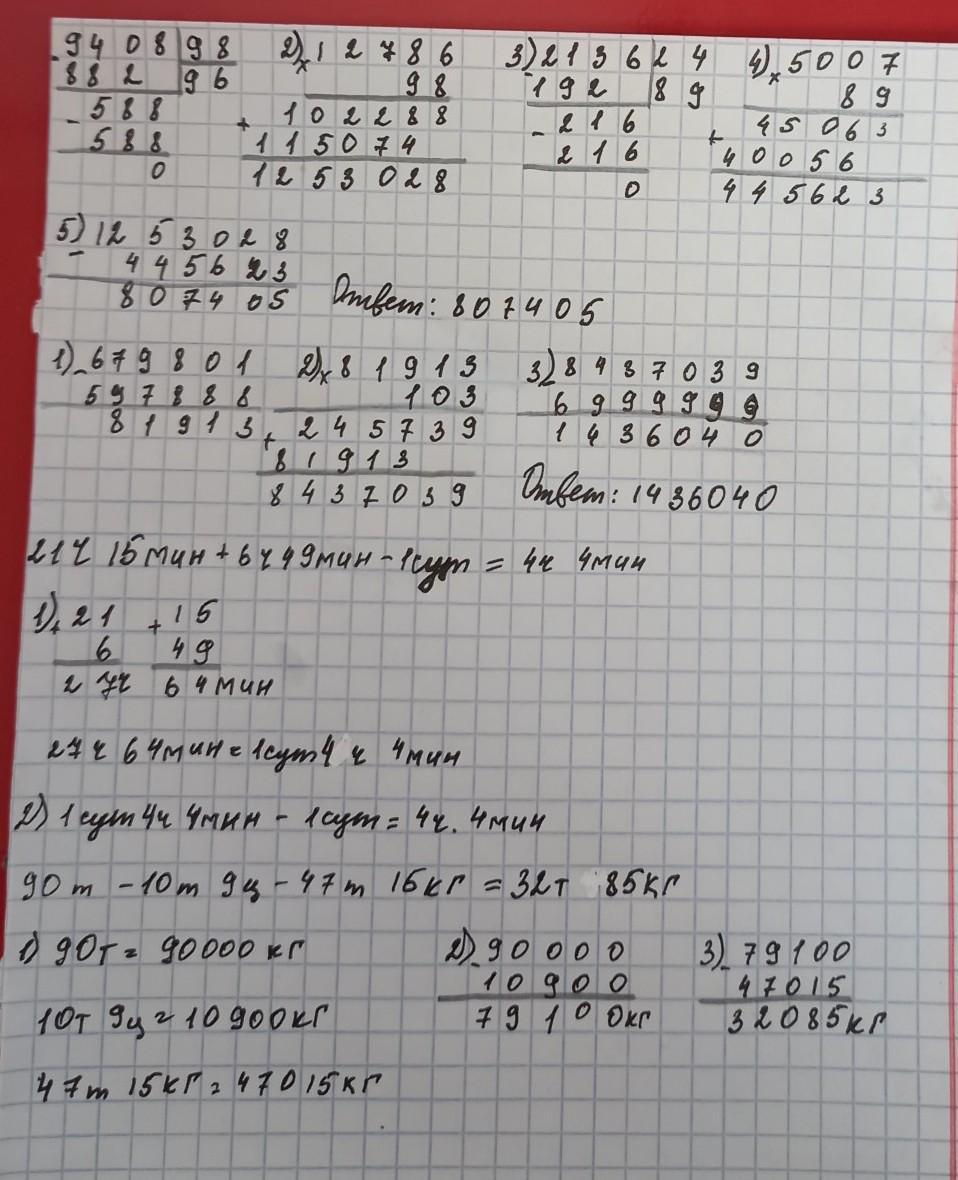 9408 98 2) 12786 3) 2136 24 4) 5007
- 882 96 × 98 - 192 89 × 89
- 588 + 102288 - 216 + 45063
588 115074 216 40056
0 1253028 0 445623
5) 1253028
- 445623
807405 Ответ: 807405
1) - 679801 2) × 81913 3) - 8437039
597888 103 6999999
81913 + 245739 1436040
81913
8437039 Ответ: 1436040
21ч 15мин + 6ч 49мин - 1сут = 4ч 4мин
1) + 21 + 15
6 49
27ч 64мин
27ч 64мин = 1сут 4ч 4мин
2) 1сут 4ч 4мин - 1сут = 4ч. 4мин
90т - 10т 9ц - 47т 15кг = 32т 85кг
1) 90т = 90000кг 2) - 90000 3) - 79100
10900 47015
10т 9ц = 10900кг 79100кг 32085кг
47т 15кг = 47015кг